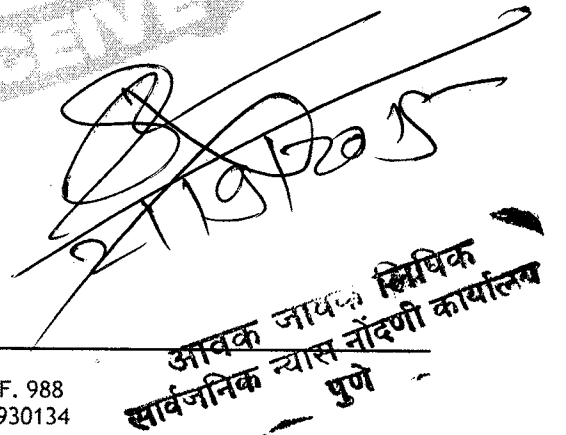 CEIVE
आवक जावक लिपिक
सार्वजनिक न्यास नोंदणी कार्यालय
पुणे
F. 988
930134